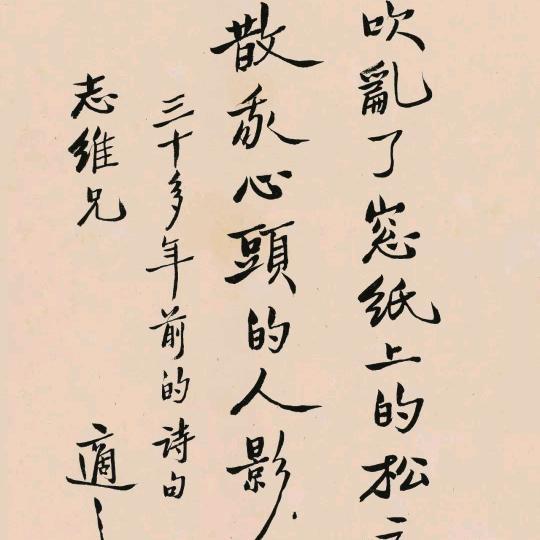 吹亂了窓紙上的松
散我心頭的人影.
三十多年前的詩句
志維兄
適之